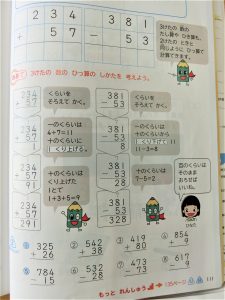 234
+ 57
381
- 53
3けたの 数の
たし算や ひき算も、
2けたの ときと
同じように ひっ算で
計算できます。
3けたの 数の ひっ算の しかたを 考えよう。
234
+ 57
くらいを
そろえて かく。
381
- 53
くらいを
そろえて かく。
234
+ 57
1
一のくらいは
4+7=11
十のくらいに
1 くり上げる。
381
- 53
8
一のくらいは
十のくらいから
1 くり下げて
11-3=8
234
+ 57
291
十のくらいは
くり上げた
1とで
1+3+5=9
381
- 53
328
十のくらいは
7-5=2
百のくらいは
そのまま
おろせば
いいね。
① 325
+ 26
② 542
+ 38
③ 419
+ 80
④ 854
+ 9
⑤ 784
- 15
⑥ 532
- 28
⑦ 473
- 73
⑧ 617
- 9
もっと れんしゅう
135ページ
111